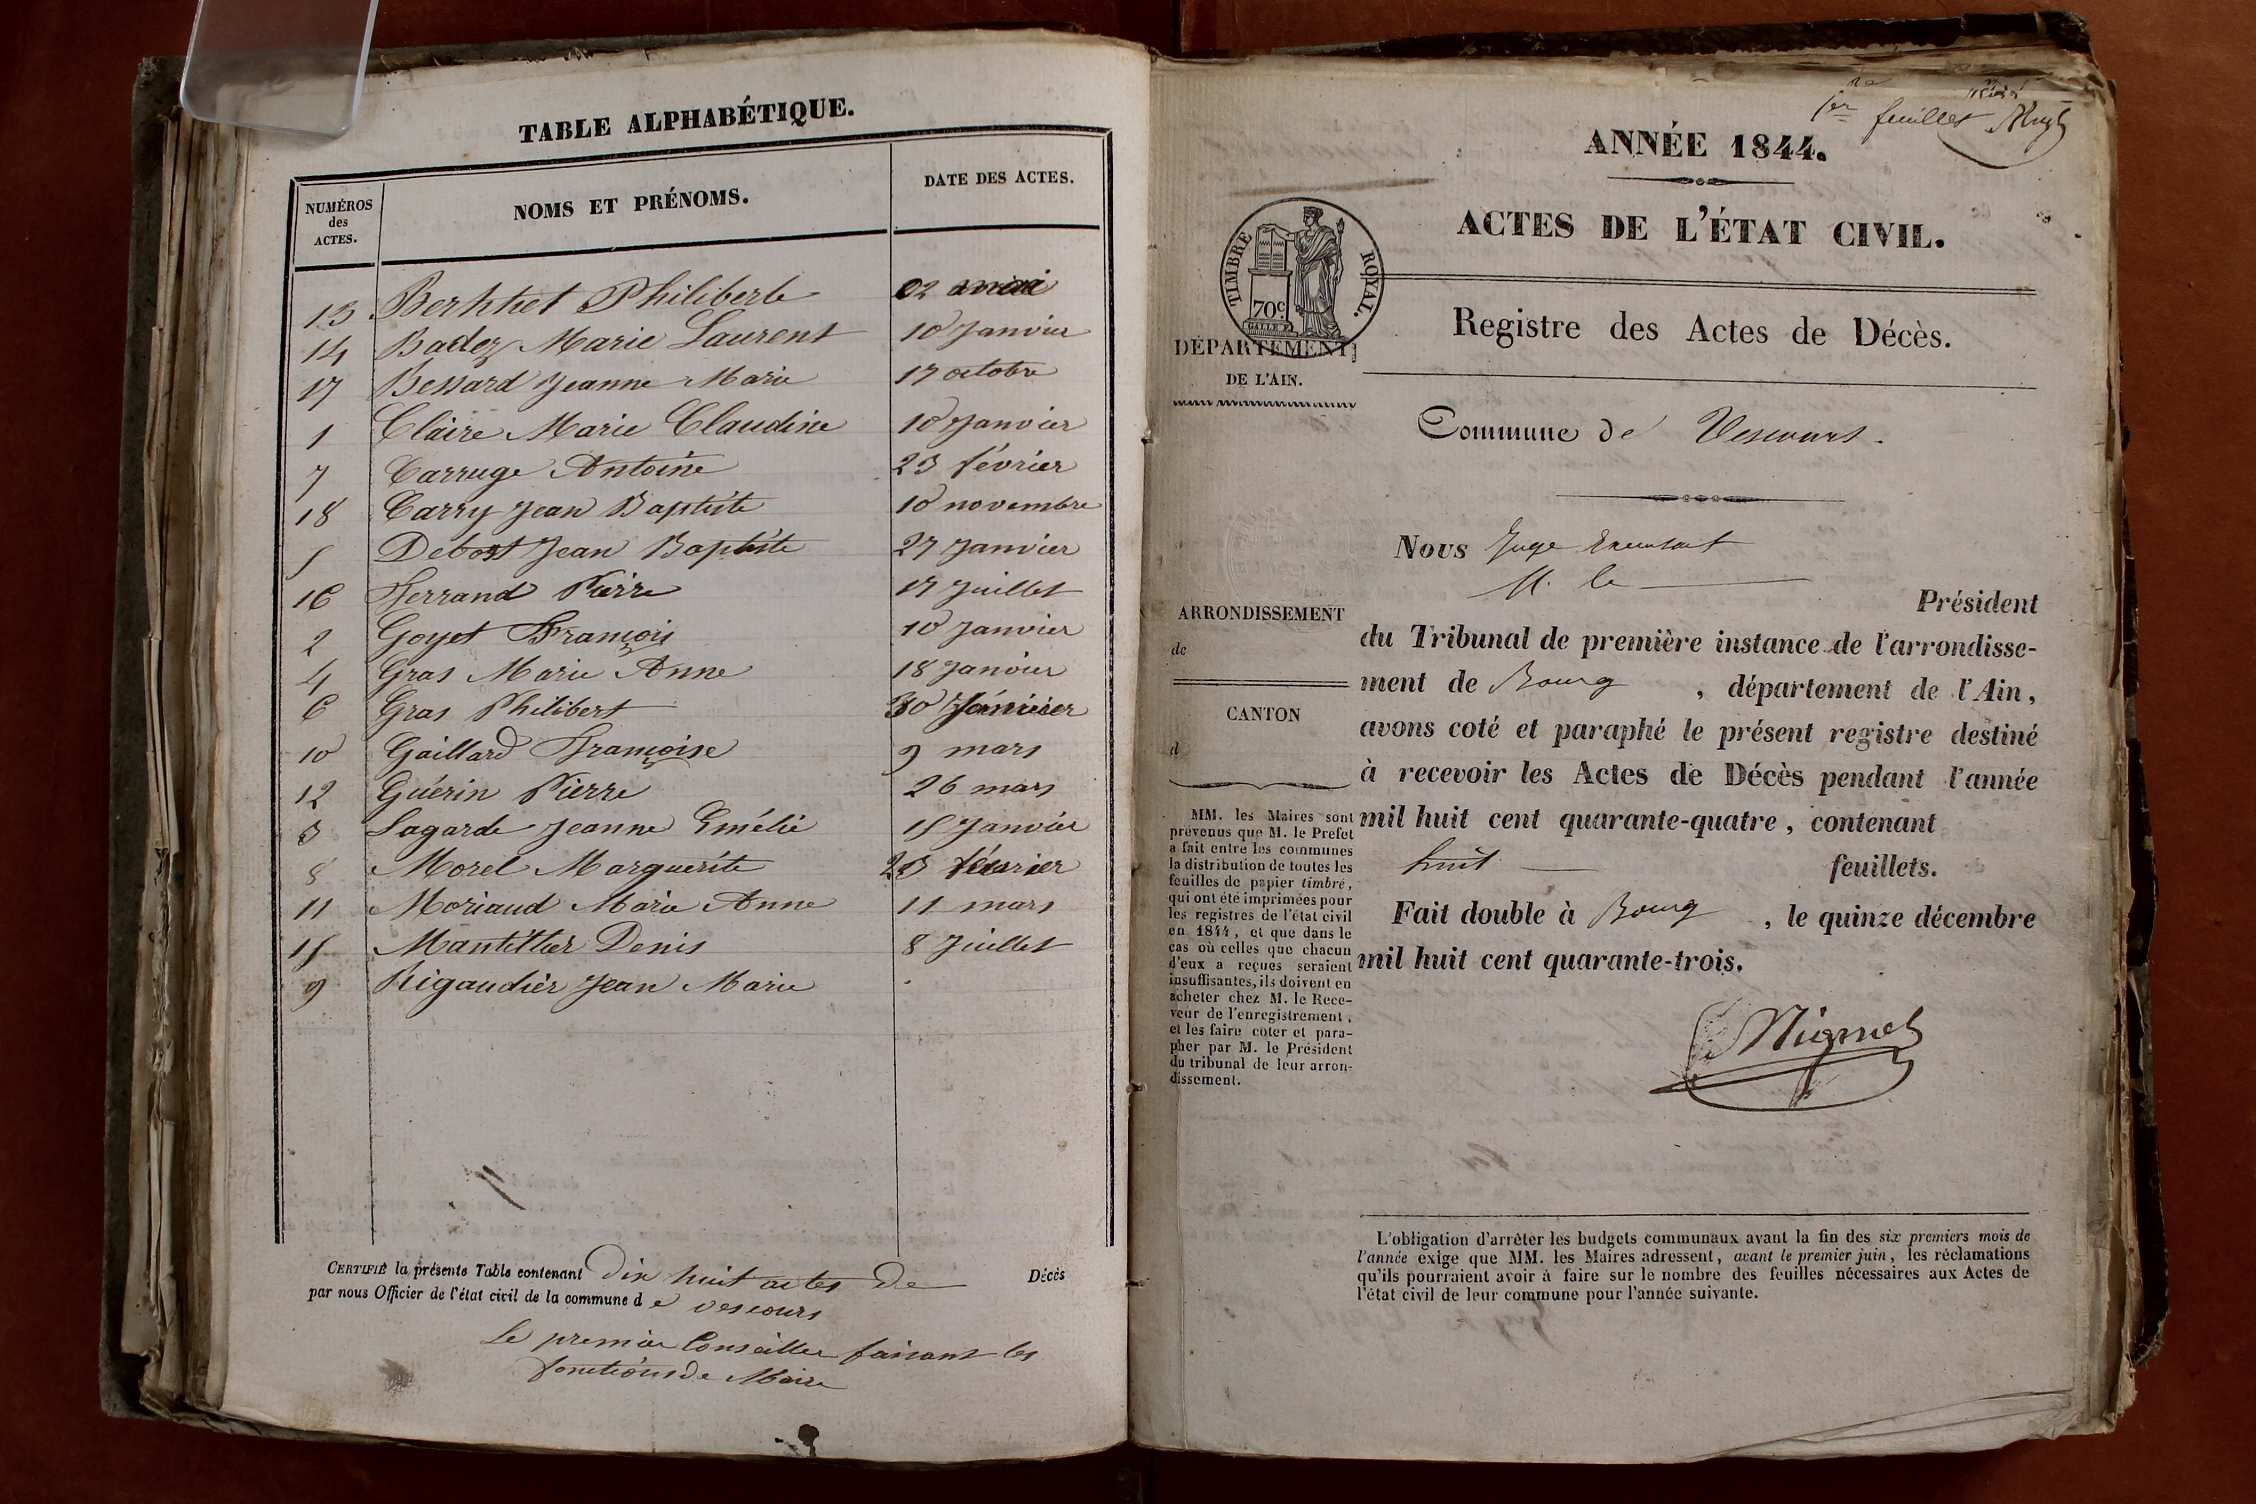 TABLE ALPHABÉTIQUE.
NUMÉROS des ACTES.
NOMS ET PRÉNOMS.
DATE DES ACTES.
13 Berthet Philibert 02 mai
14 Badez Marie Laurent 10 Janvier
17 Bessard Jeanne Marie 17 octobre
1 Claire Marie Claudine 10 Janvier
7 Carruge Antoine 23 février
18 Carry Jean Baptiste 10 novembre
5 Debost Jean Baptiste 27 Janvier
16 Ferrand Pierre 17 Juillet
2 Goyet François 10 Janvier
4 Gras Marie Anne 18 Janvier
6 Gras Philibert 30 Janvier
10 Gaillard Françoise 9 mars
12 Guérin Pierre 26 mars
3 Lagarde Jeanne Emélie 15 Janvier
8 Morel Marguerite 23 février
11 Moriaud Marie Anne 11 mars
15 Mantillier Denis 8 Juillet
9 Rigaudier Jean Marie
CERTIFIÉ la présente Table contenant Dix huit actes de Décès
par nous Officier de l'état civil de la commune de vescours
Le premier Conseiller faisant les
fonctions de Maire
1er feuillet
ANNÉE 1844.
ACTES DE L'ÉTAT CIVIL.
TIMBRE ROYAL.
70c
Registre des Actes de Décès.
DÉPARTEMENT
DE L'AIN.
Commune de Vescours.
Nous Juge
M. le Président
ARRONDISSEMENT
de
CANTON
d
du Tribunal de première instance de l'arrondisse-
ment de Bourg, département de l'Ain,
avons coté et paraphé le présent registre destiné
à recevoir les Actes de Décès pendant l'année
mil huit cent quarante-quatre, contenant
huit feuillets.
Fait double à Bourg, le quinze décembre
mil huit cent quarante-trois.
MM. les Maires sont
prévenus que M. le Prefet
a fait entre les communes
la distribution de toutes les
feuilles de papier timbré,
qui ont été imprimées pour
les registres de l'état civil
en 1844, et que dans le
cas où celles que chacun
d'eux a reçues seraient
insuffisantes, ils doivent en
acheter chez M. le Rece-
veur de l'enregistrement,
et les faire coter et para-
pher par M. le Président
du tribunal de leur arron-
dissement.
L'obligation d'arrêter les budgets communaux avant la fin des six premiers mois de
l'année exige que MM. les Maires adressent, avant le premier juin, les réclamations
qu'ils pourraient avoir à faire sur le nombre des feuilles nécessaires aux Actes de
l'état civil de leur commune pour l'année suivante.